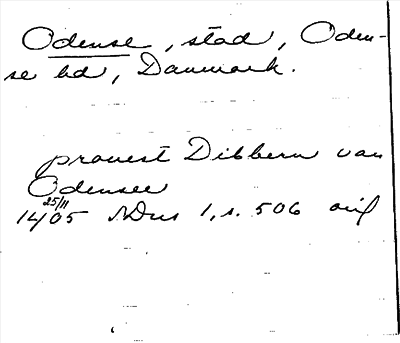 Odense, stad, Oden-
se hd, Danmark.
prouest Dibbern van
Odensee
14 25/11 05 NDns 1, s. 506 orig